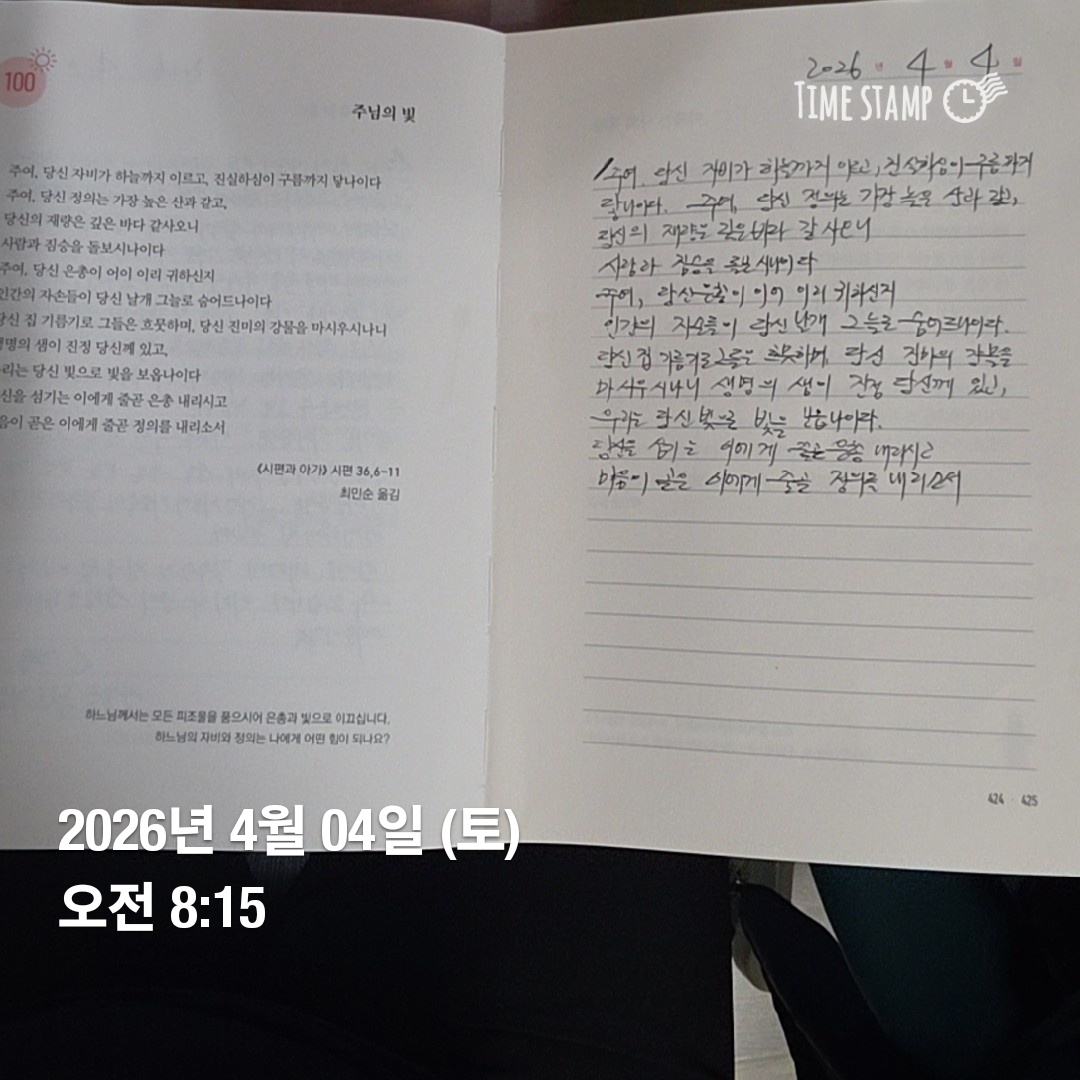 100
주님의 빛
주여, 당신 자비가 하늘까지 이르고, 진실하심이 구름까지 닿나이다
주여, 당신 정의는 가장 높은 산과 같고,
당신의 재량은 깊은 바다 같사오니
사람과 짐승을 돌보시나이다
주여, 당신 은총이 어이 이리 귀하신지
인간의 자손들이 당신 날개 그늘로 숨어드나이다
당신 집 기름기로 그들은 흐뭇하며, 당신 진미의 강물을 마시우시나니
생명의 샘이 진정 당신께 있고,
리는 당신 빛으로 빛을 보옵나이다
신을 섬기는 이에게 줄곧 은총 내리시고
음이 곧은 이에게 줄곧 정의를 내리소서
《시편과 아가》 시편 36,6-11
최민순 옮김
하느님께서는 모든 피조물을 품으시어 은총과 빛으로 이끄십니다.
하느님의 자비와 정의는 나에게 어떤 힘이 되나요?
2026년 4월 4일
TIME STAMP
주여, 당신 자비가 하늘까지 이르고, 진실하심이 구름까지
닿나이다. 주여, 당신 정의는 가장 높은 산과 같고,
당신의 재량은 깊은 바다 같사오니
사람과 짐승을 돌보시나이다
주여, 당신은총이 어이 이리 귀하신지
인간의 자손들이 당신 날개 그늘로 숨어드나이다.
당신 집 기름기로 그들은 흐뭇하며 당신 진미의 강물을
마시우시나니 생명의 샘이 진정 당신께 있고,
우리는 당신 빛으로 빛을 보옵나이다.
당신을 섬기는 이에게 줄곧 은총 내리시고
마음이 곧은 이에게 줄곧 정의를 내리소서
424 · 425
2026년 4월 04일 (토)
오전 8:15